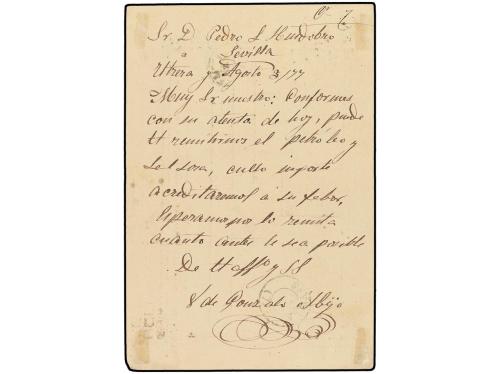 Sr. D. Pedro L. Huidobro
Sevilla
Utrera y Agosto 3/77
Muy Sr. nuestro: Conformes
con su atenta de hoy, puede
U remitirnos el petróleo y
sosa, cullo importe
acreditaremos á su fabor,
Esperamos nos lo remita
cuanto antes le sea posible
De U affo y SS
V de Gonzalo é Hijo